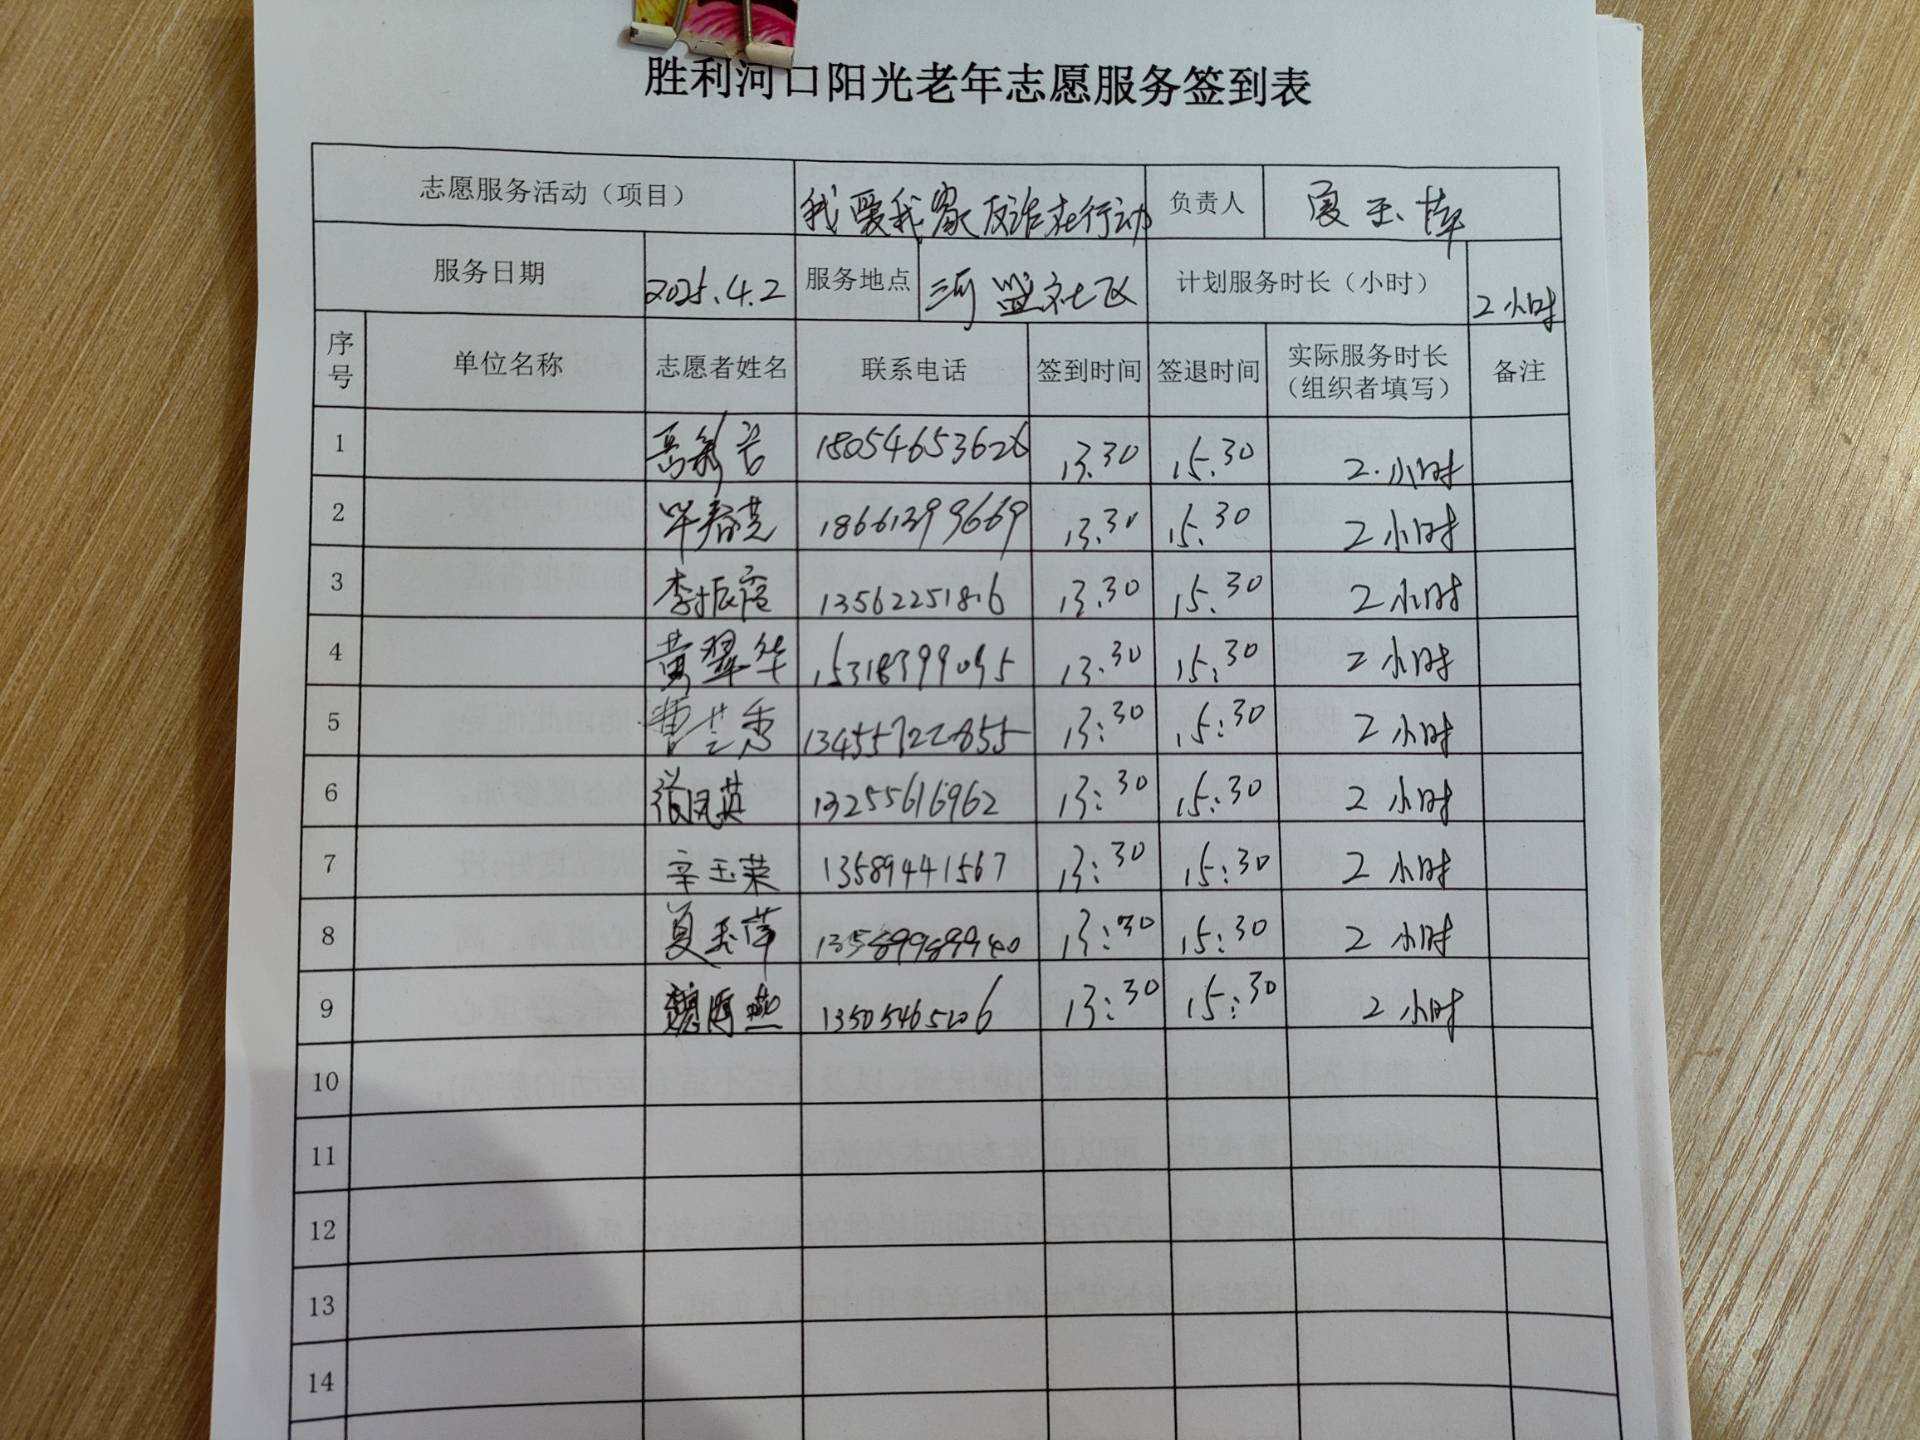 胜利河口阳光老年志愿服务签到表
志愿服务活动（项目） 我爱我家反诈在行动 负责人 夏玉萍
服务日期 2025.4.2 服务地点 河盟社区 计划服务时长（小时） 2小时
序号 单位名称 志愿者姓名 联系电话 签到时间 签退时间 实际服务时长（组织者填写） 备注
1 18054653626 13.30 15.30 2.小时
2 18661399669 13.30 15.30 2小时
3 李振 13562251816 13.30 15.30 2小时
4 黄翠华 15318399095 13.30 15:30 2小时
5 曹兰秀 13455722655 13:30 15:30 2小时
6 张凤英 13255616962 13:30 15:30 2小时
7 辛玉荣 13589441567 13:30 15:30 2小时
8 夏玉萍 13:30 15:30 2小时
9 13:30 15:30 2小时
10
11
12
13
14